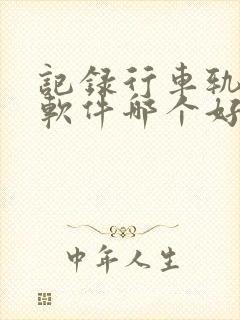 記錄行車軌
軟件哪个好
中年人生